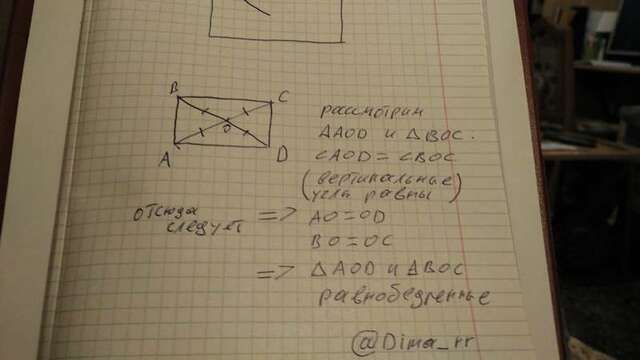 B
C
O
A
D
рассмотрим
△AOD и △BOC.
∠AOD = ∠BOC
(вертикальные
угла равны)
отсюда
следует => AO=OD
BO=OC
=> △AOD и △BOC
равнобедренные
@Dima_rr